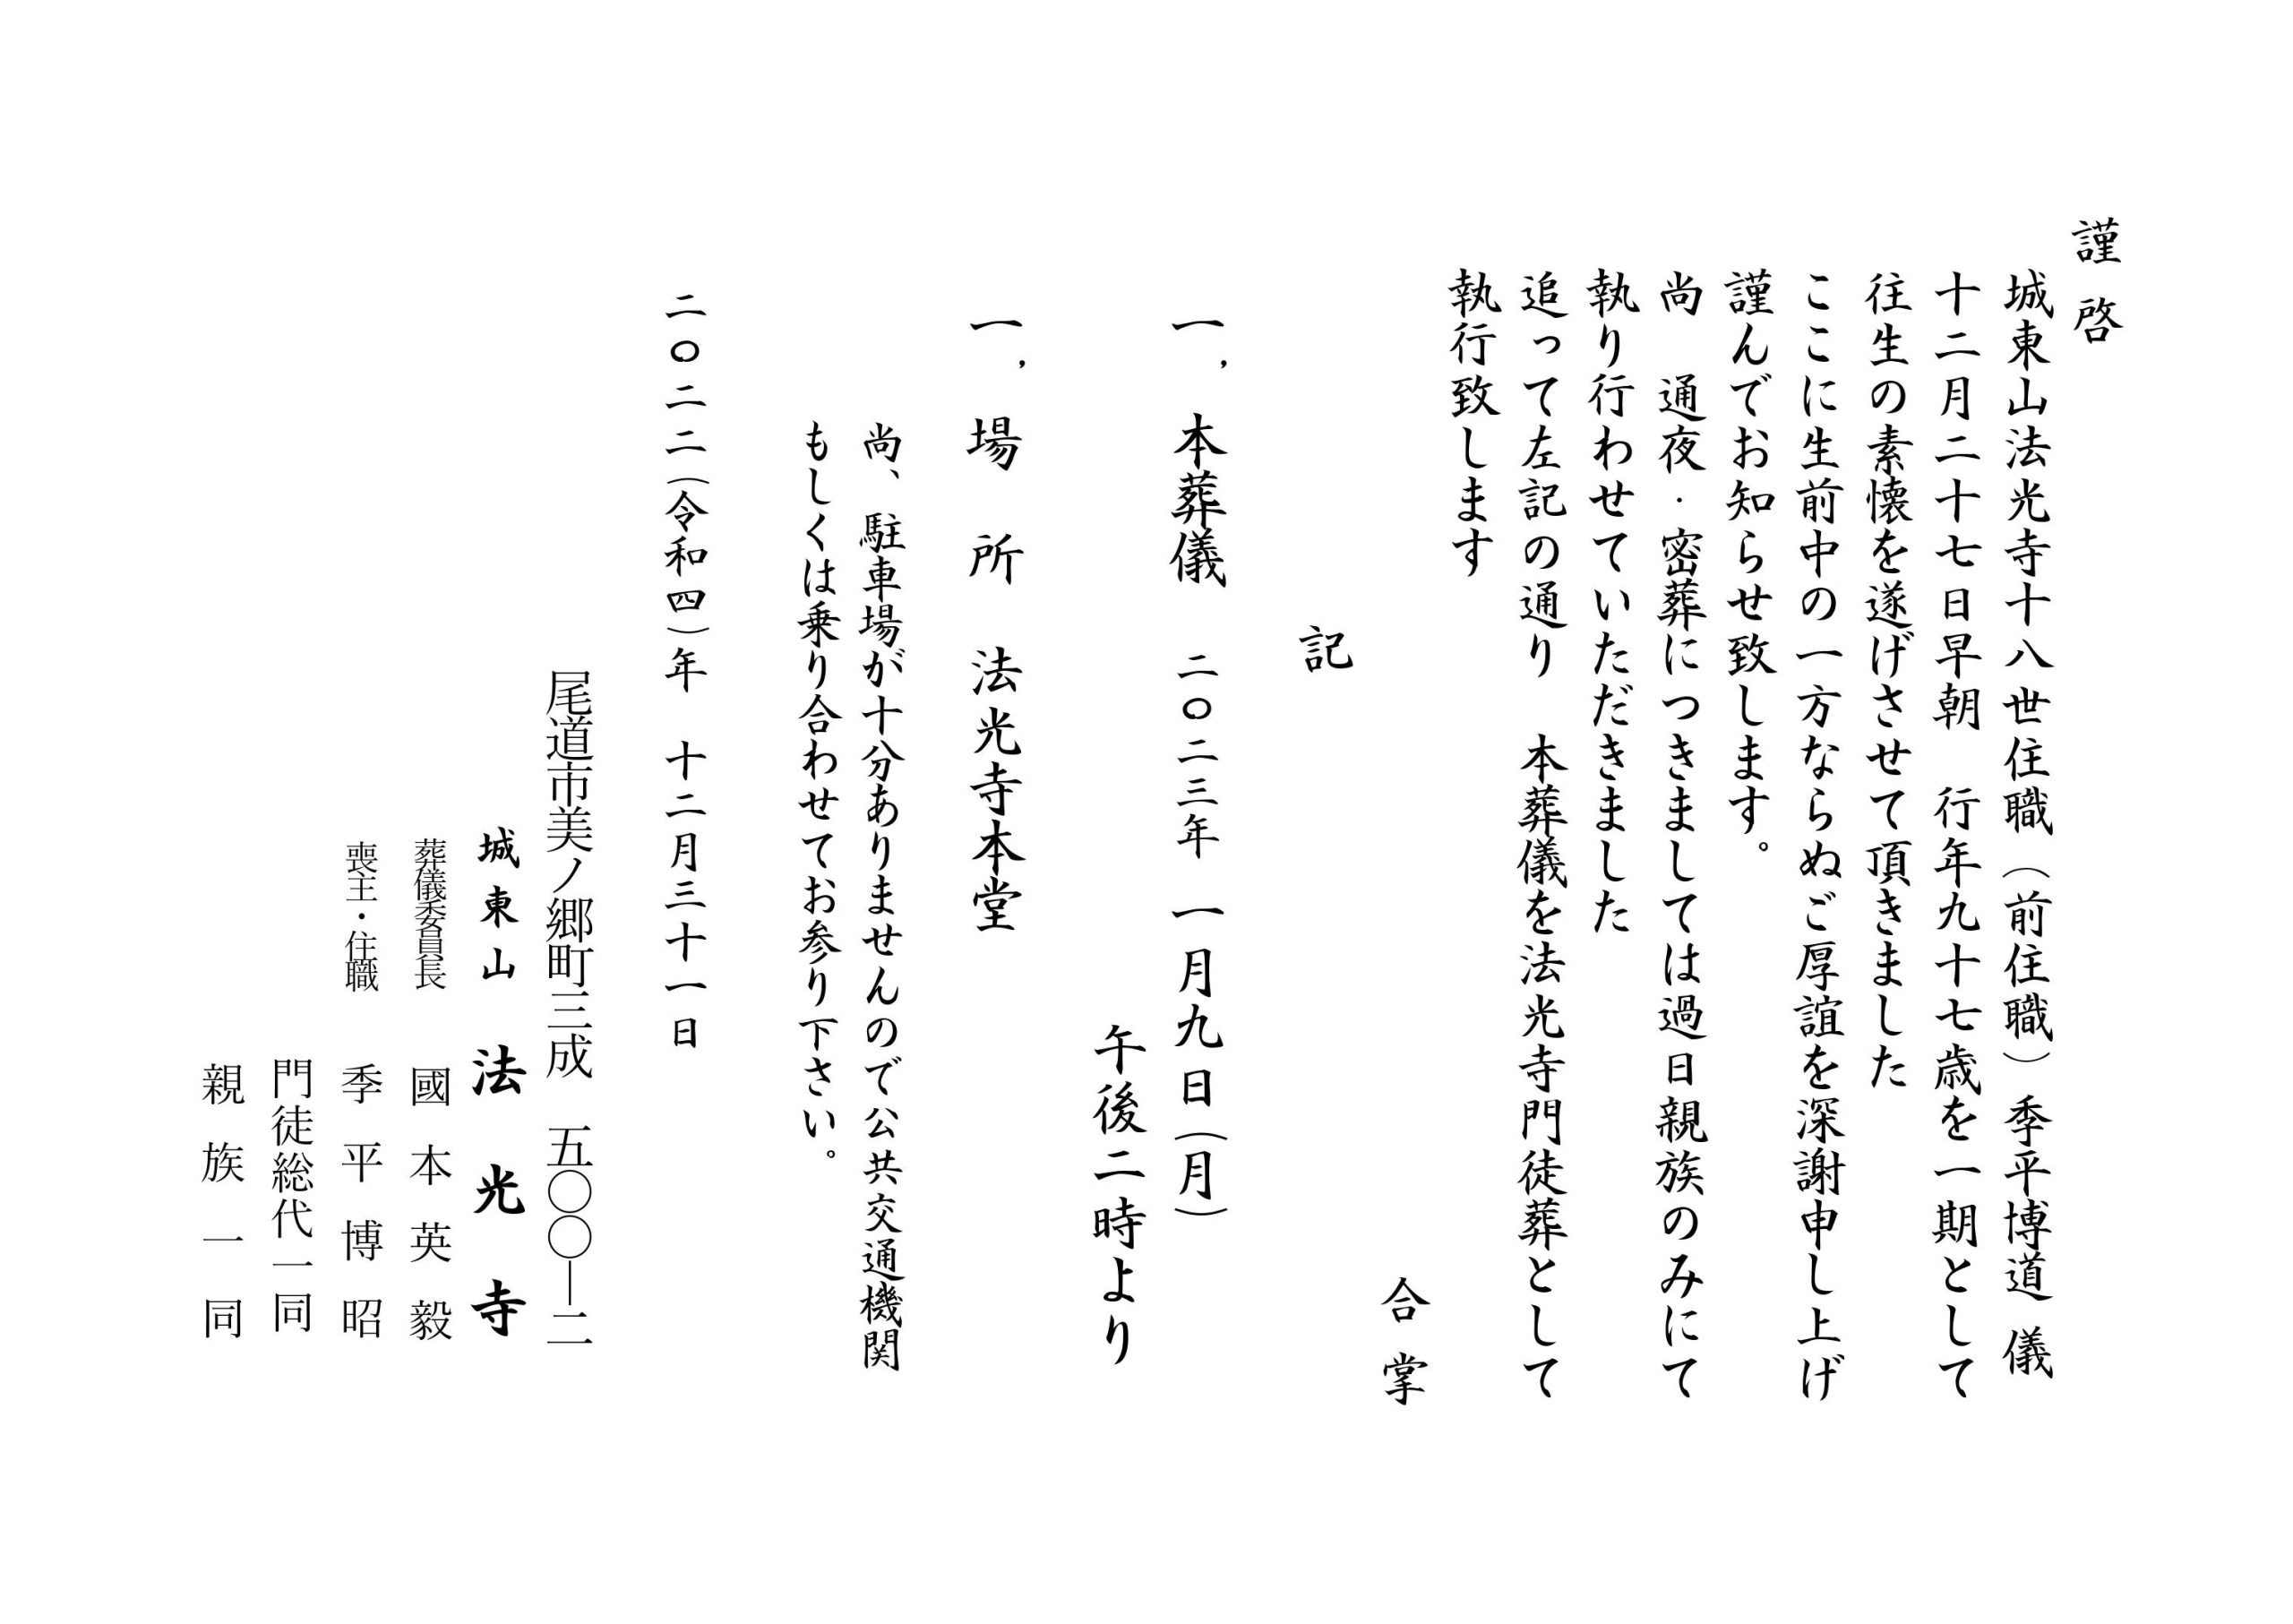 謹啓
城東山法光寺十八世住職（前住職）季平博道 儀
十二月二十七日早朝　行年九十七歳を一期として
往生の素懐を遂げさせて頂きました
ここに生前中の一方ならぬご厚誼を深謝申し上げ
謹んでお知らせ致します。
尚　通夜・密葬につきましては過日親族のみにて
執り行わせていただきました
追って左記の通り　本葬儀を法光寺門徒葬として
執行致します
合掌
記
一．本葬儀　二〇二三年　一月九日（月）
午後二時より
一．場　所　法光寺本堂
尚、駐車場が十分ありませんので公共交通機関
もしくは乗り合わせてお参り下さい。
二〇二二（令和四）年　十二月三十一日
尾道市美ノ郷町三成　五〇〇―二
城東山　法光寺
葬儀委員長　國本英毅
喪主・住職　季平博昭
門徒総代一同
親族一同